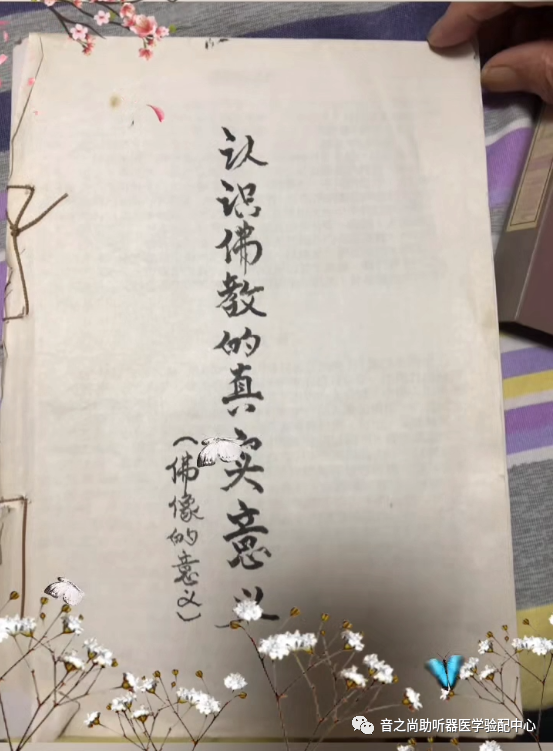 认识佛教的真实意义
(佛像的意义)
音之尚助听器医学验配中心